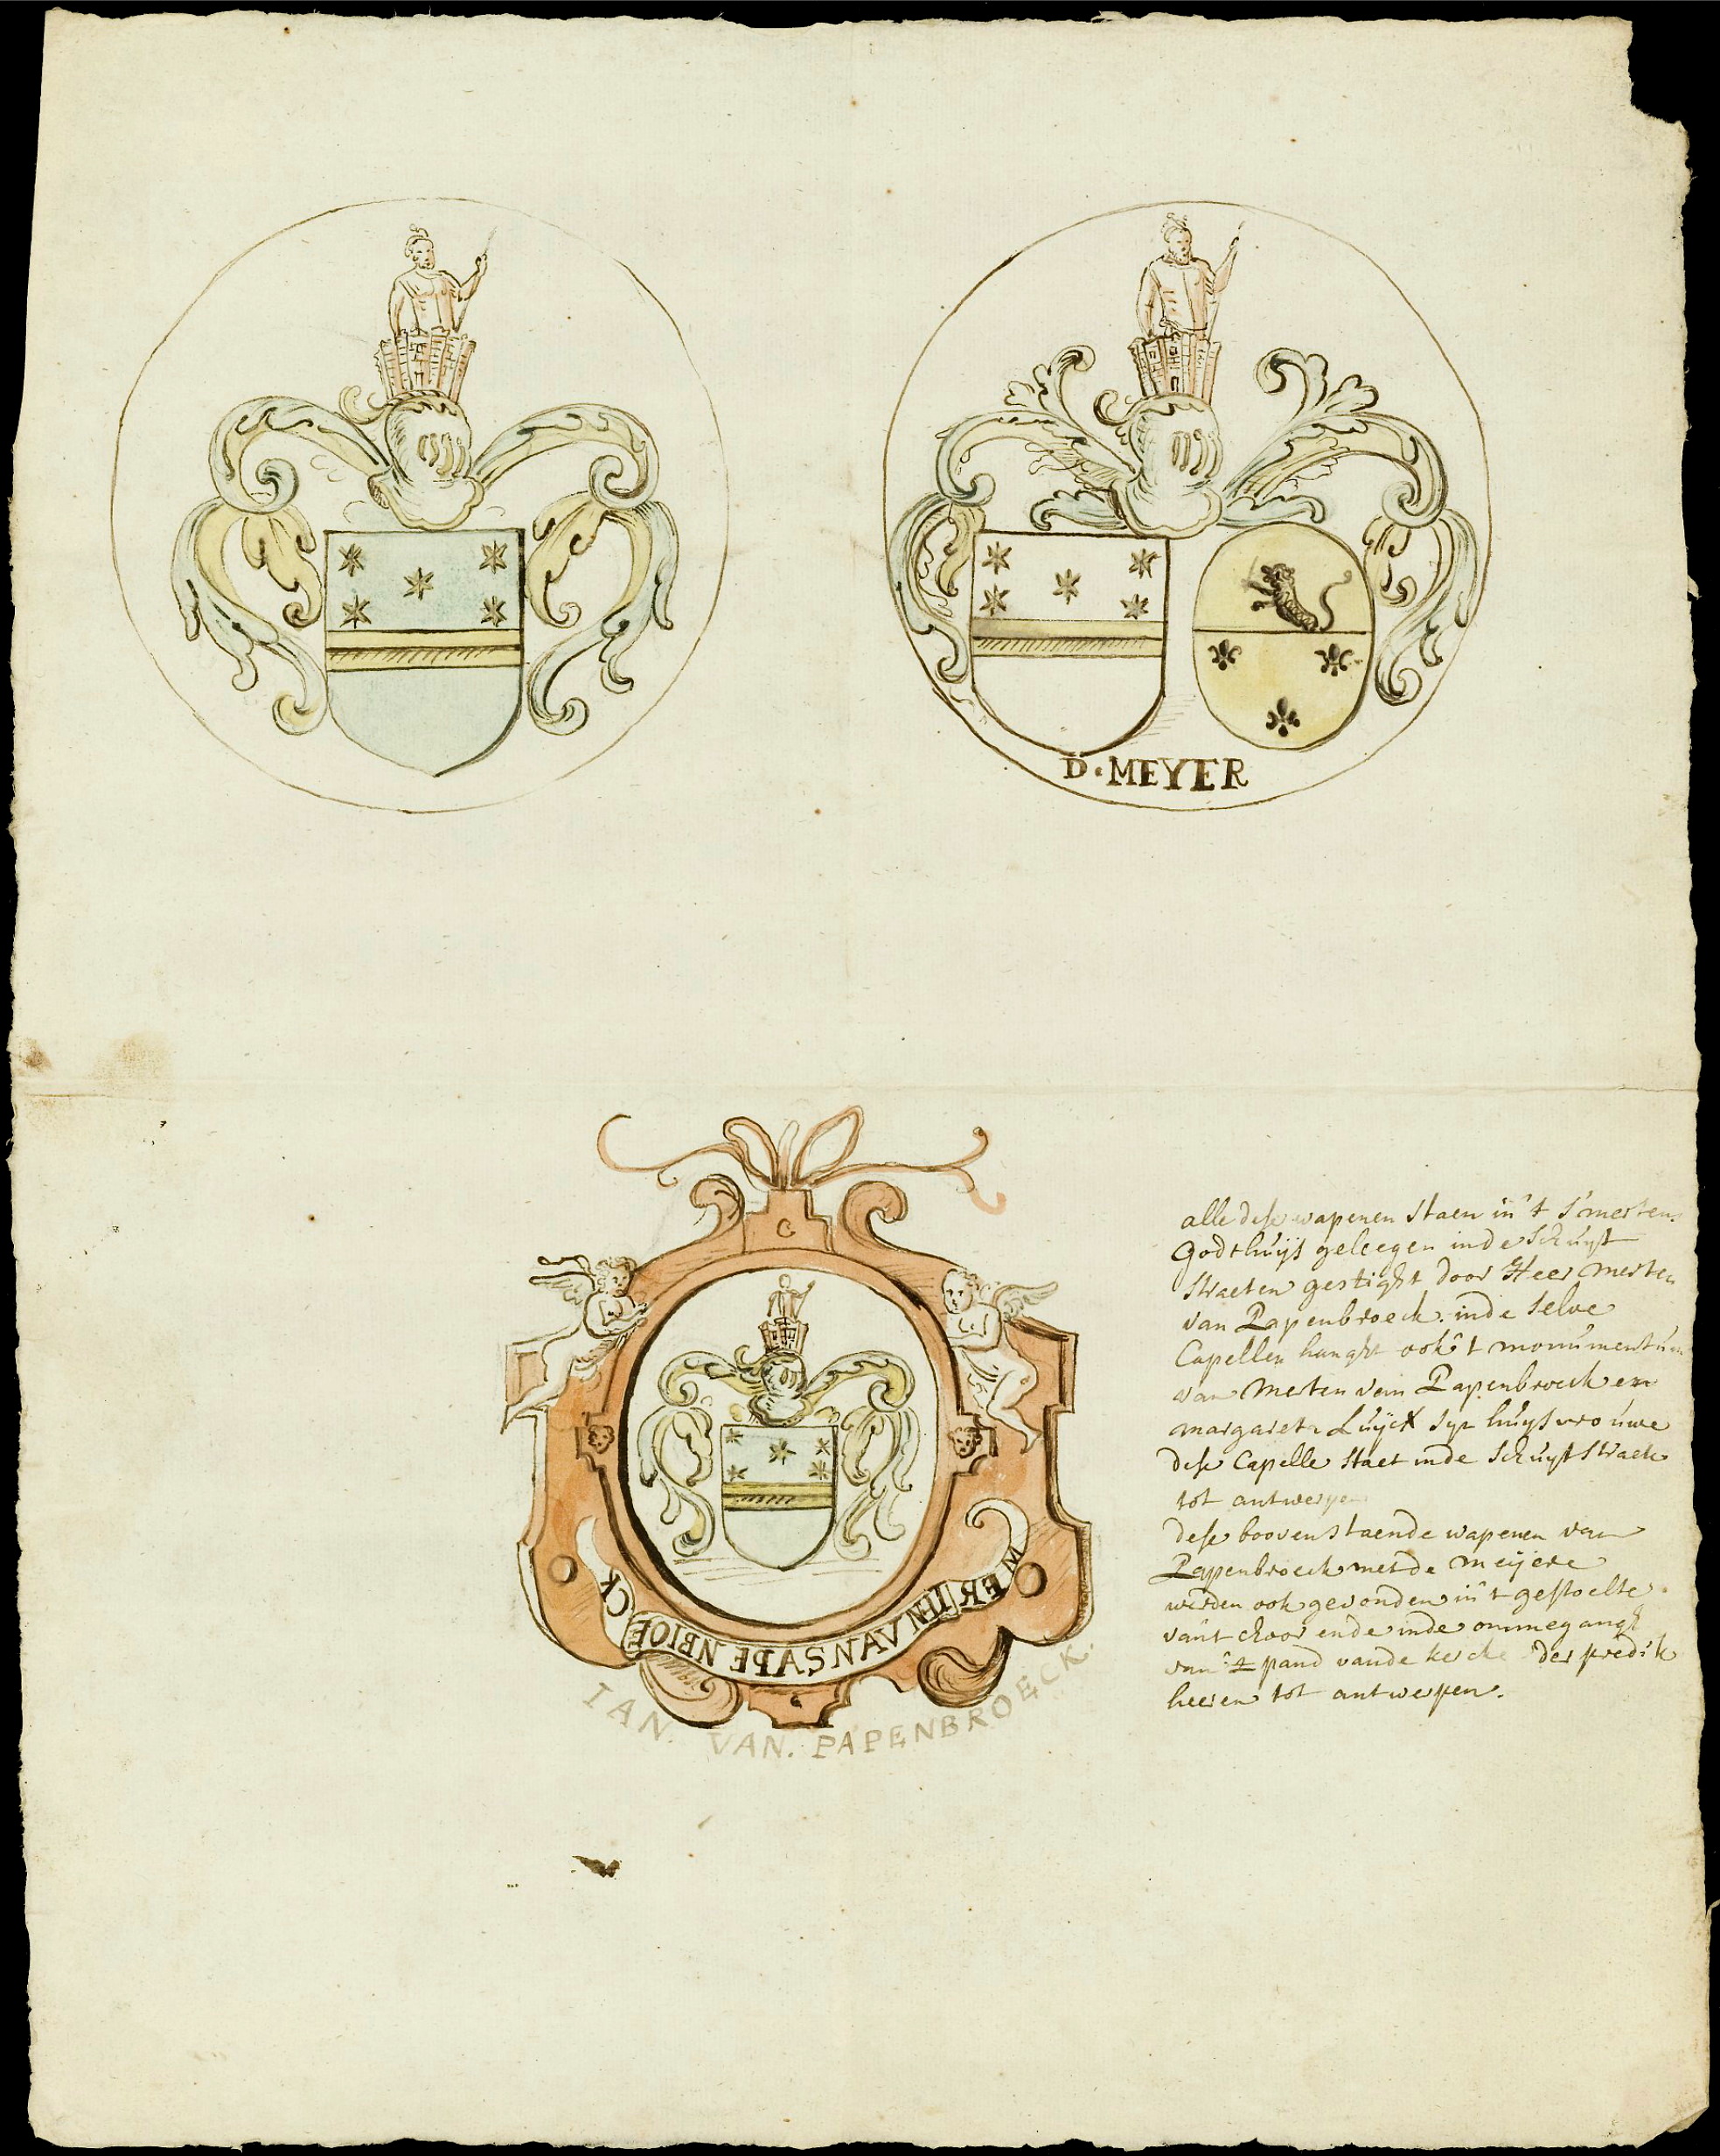 D. MEYER
MERTEN VAN SAPENBROECK
IAN. VAN. PAPENBROECK.
alle dese wapenen staen in't S'merten
Godthuijs geleegen inde Schuijt
straeten gestight door Heer Merten
van Papenbroeck. inde selve
Capellen hanght ook't monumentum
van Merten van Papenbroeck en
margareta Luijckx syn huijsvrouwe
dese Capelle staet inde SchuytStraete
tot antwerpen
dese boovenstaende wapenen van
Papenbroeck met de meijere
werden ook gevonden in't gestoelte
vant choor ende inde ommegangh
van't pand vande kercke der predik
heeren tot antwerpen.